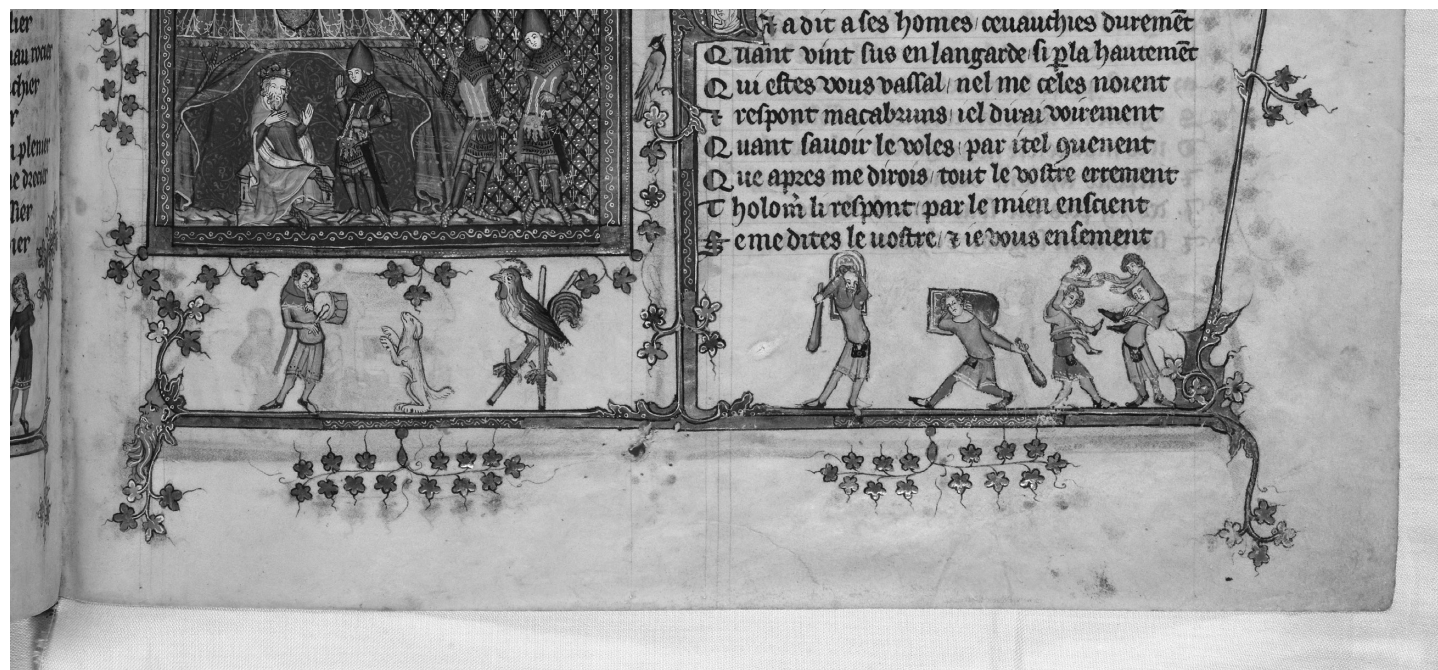 lier
nau rocier
chier
r
n plenier
ne drecier
ſſier
nier
⁊ a dit a ſes homes / ceuauchies duremēt
Quant vint ſus en langarde / ſi ꝑla hautemēt
Qui eſtes vous vaſſal / nel me celes noient
Et reſpont macabruns / iel dirai voirement
Quant ſauoir le voles / par itel ꝯuenent
Que apres me dirois / tout le voſtre errement
Tholom̄ li reſpont / par le mien enſcient
Se me dites le uoſtre / ⁊ ie vous enſement